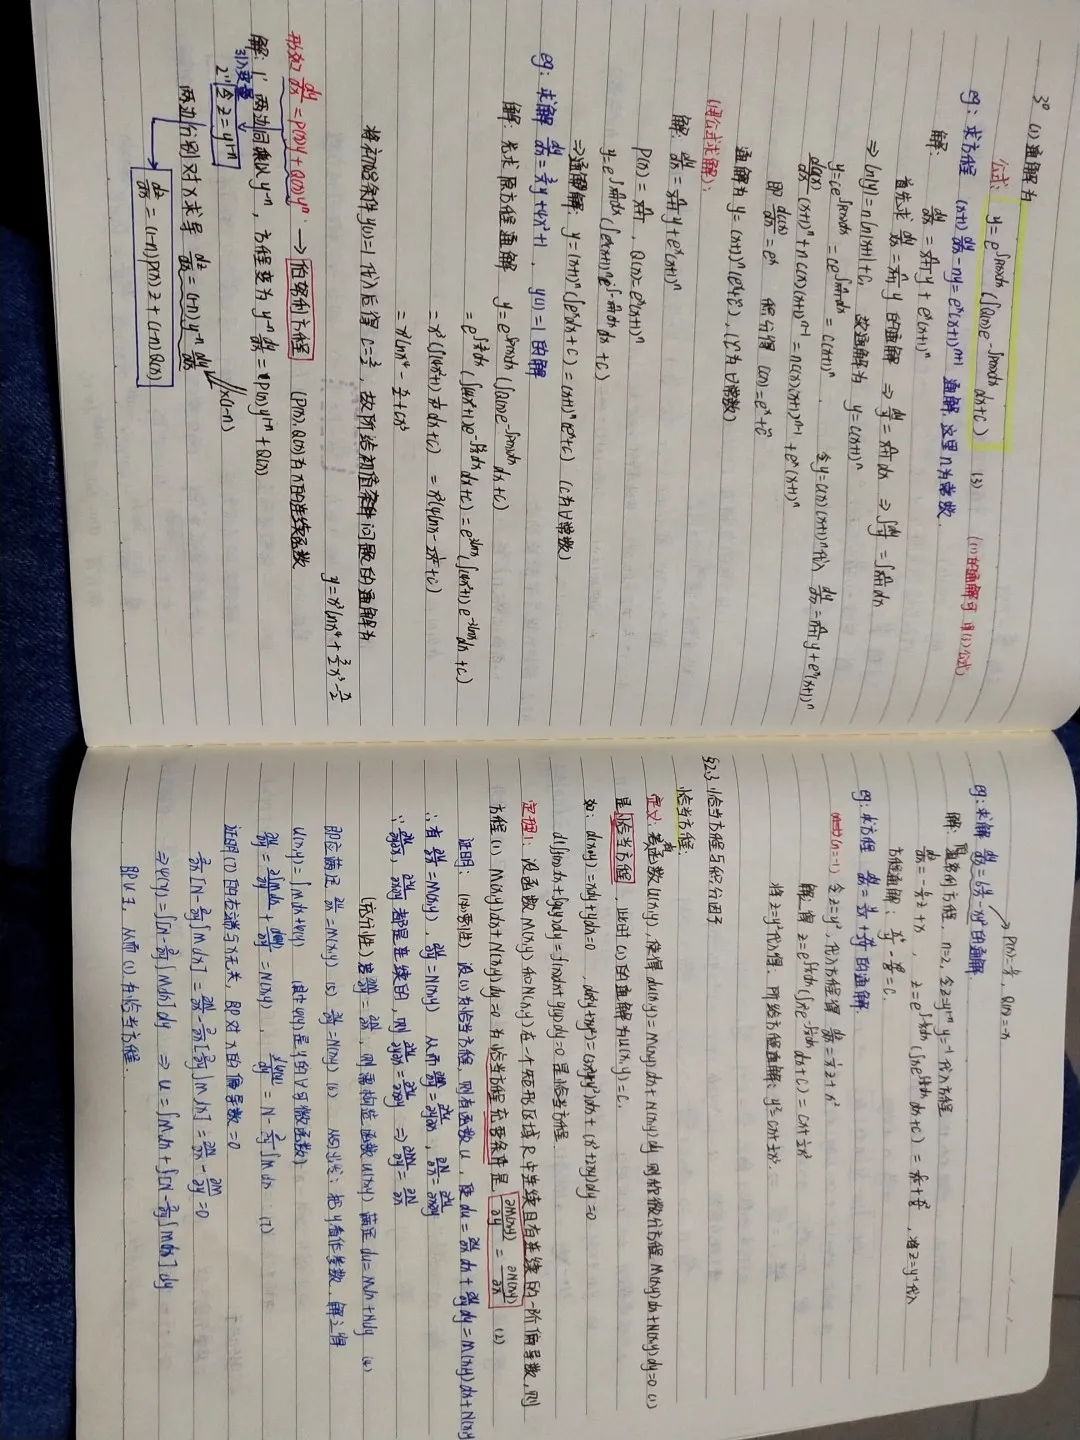 3° (1)通解为
公式: y=e^{∫p(x)dx}(∫Q(x)e^{-∫p(x)dx}dx+C) (3) ((1)的通解可用(3)公式)
eg: 求方程 (x+1)dy/dx-ny=e^x(x+1)^{n+1} 通解, 这里n为常数.
解: dy/dx=n/(x+1)y+e^x(x+1)^n
首先求 dy/dx=n/(x+1)y 的通解 ⇒ dy/y=n/(x+1)dx ⇒ ∫dy/y=∫n/(x+1)dx
⇒ ln|y|=n ln|x+1|+C, 故通解为 y=C(x+1)^n
y=ce^{∫p(x)dx}=ce^{∫n/(x+1)dx}=C(x+1)^n, 令y=C(x)(x+1)^n代入 dy/dx=n/(x+1)y+e^x(x+1)^n
dc(x)/dx(x+1)^n+nC(x)(x+1)^{n-1}=nC(x)(x+1)^{n-1}+e^x(x+1)^n
即 dc(x)/dx=e^x 积分得 C(x)=e^x+C̃
通解为 y=(x+1)^n(e^x+C̃), (C̃为∀常数)
(用公式求解):
解: dy/dx=n/(x+1)y+e^x(x+1)^n
P(x)=n/(x+1), Q(x)=e^x(x+1)^n
y=e^{∫n/(x+1)dx}(∫e^x(x+1)^n e^{∫-n/(x+1)dx}dx+C)
⇒通解: y=(x+1)^n(∫e^xdx+C)=(x+1)^n(e^x+C) (C为∀常数)
eg: 求解 dy/dx=3/x y+4x²+1, y(1)=1 的解
解: 先求原方程通解 y=e^{∫p(x)dx}(∫Q(x)e^{-∫p(x)dx}dx+C)
=e^{∫3/x dx}(∫(4x²+1)e^{-∫3/x dx}dx+C)=e^{3lnx}(∫(4x²+1)e^{-3lnx}dx+C)
=x³(∫(4x²+1)1/x³dx+C) =x³(4lnx-1/2x²+C)
=x³lnx⁴-x/2+Cx³
将初始条件y(1)=1 代入后得 C=3/2, 故所给初值条件问题的通解为
y=x³lnx⁴+3/2x³-x/2
形如 dy/dx=P(x)y+Q(x)y^n: → 伯努利方程 (P(x),Q(x)为x的连续函数
解: 1° 两边同乘以y^{-n}, 方程变为 y^{-n}dy/dx=P(x)y^{1-n}+Q(x)
引入变量
2° 令z=y^{1-n}
×(1-n)
两边分别对x求导 dz/dx=(1-n)y^{-n}dy/dx
dz/dx=(1-n)P(x)z+(1-n)Q(x)
P(x)=6/x, Q(x)=-x
eg: 求解 dy/dx=6y/x-xy²的通解
解: 伯努利方程, n=2, 令z=y^{1-n}=y^{-1}代入方程
dz/dx=-6/x z+x, z=e^{∫-6/x dx}(∫xe^{∫6/x dx}dx+C)=C/x⁶+x²/8, 将z=y^{-1}代入
方程通解: x⁶/y-x⁸/8=C.
eg: 求方程 dy/dx=y/2x+x²/2y 的通解
(n=-1) 令z=y², 代入方程得 dz/dx=1/x z+x²
解之得 z=e^{∫1/x dx}(∫x²e^{-∫1/x dx}dx+C)=Cx+1/2x³
将z=y²代入得, 所给方程通解: y²=Cx+1/2x³.
§2.3 恰当方程与积分因子
恰当方程:
定义: 若有函数U(x,y), 使得 du(x,y)=M(x,y)dx+N(x,y)dy 则称微分方程 M(x,y)dx+N(x,y)dy=0 (1)
是恰当方程, 此时(1)的通解为U(x,y)=C.
如: d(xy)=xdy+ydx=0, d(x²y+xy²)=(2xy+y²)dx+(x²+2xy)dy=0
d(∫f(x)dx+∫g(y)dy)=f(x)dx+g(y)dy=0是恰当方程.
定理1: 设函数M(x,y)和N(x,y)在一个矩形区域R中连续且有连续的一阶偏导数, 则
方程(1) M(x,y)dx+N(x,y)dy=0 为恰当方程充要条件是 ∂M(x,y)/∂y=∂N(x,y)/∂x (2)
证明: (必要性) 设(1)为恰当方程, 则有函数U, 使 du=∂u/∂x dx+∂u/∂y dy=M(x,y)dx+N(x,y)
∴有 ∂u/∂x=M(x,y), ∂u/∂y=N(x,y) 从而 ∂M/∂y=∂²u/∂y∂x, ∂N/∂x=∂²u/∂x∂y
∵ ∂²u/∂y∂x, ∂²u/∂x∂y 都是连续的, 则 ∂²u/∂y∂x=∂²u/∂x∂y ⇒ ∂M/∂y=∂N/∂x
(充分性) 若∂M/∂y=∂N/∂x, 则需构造函数U(x,y) 满足 du=Mdx+Ndy (4)
即应满足 ∂u/∂x=M(x,y) (5) ∂u/∂y=N(x,y) (6) 从(5)出发: 把y看作参数, 解之得
U(x,y)=∫Mdx+φ(y) (其中φ(y)是y的∀可微函数)
∂u/∂y=∂/∂y∫Mdx+dφ(y)/dy=N(x,y), dφ(y)/dy=N-∂/∂y∫Mdx (7)
证明(7)的右端与x无关, 即对x的偏导数=0
∂/∂x[N-∂/∂y∫Mdx]=∂N/∂x-∂/∂x[∂/∂y∫Mdx]=∂N/∂x-∂M/∂y=0
⇒φ(y)=∫[N-∂/∂y∫Mdx]dy ⇒ U=∫Mdx+∫[N-∂/∂y∫Mdx]dy
即U∃, 从而(1)为恰当方程.